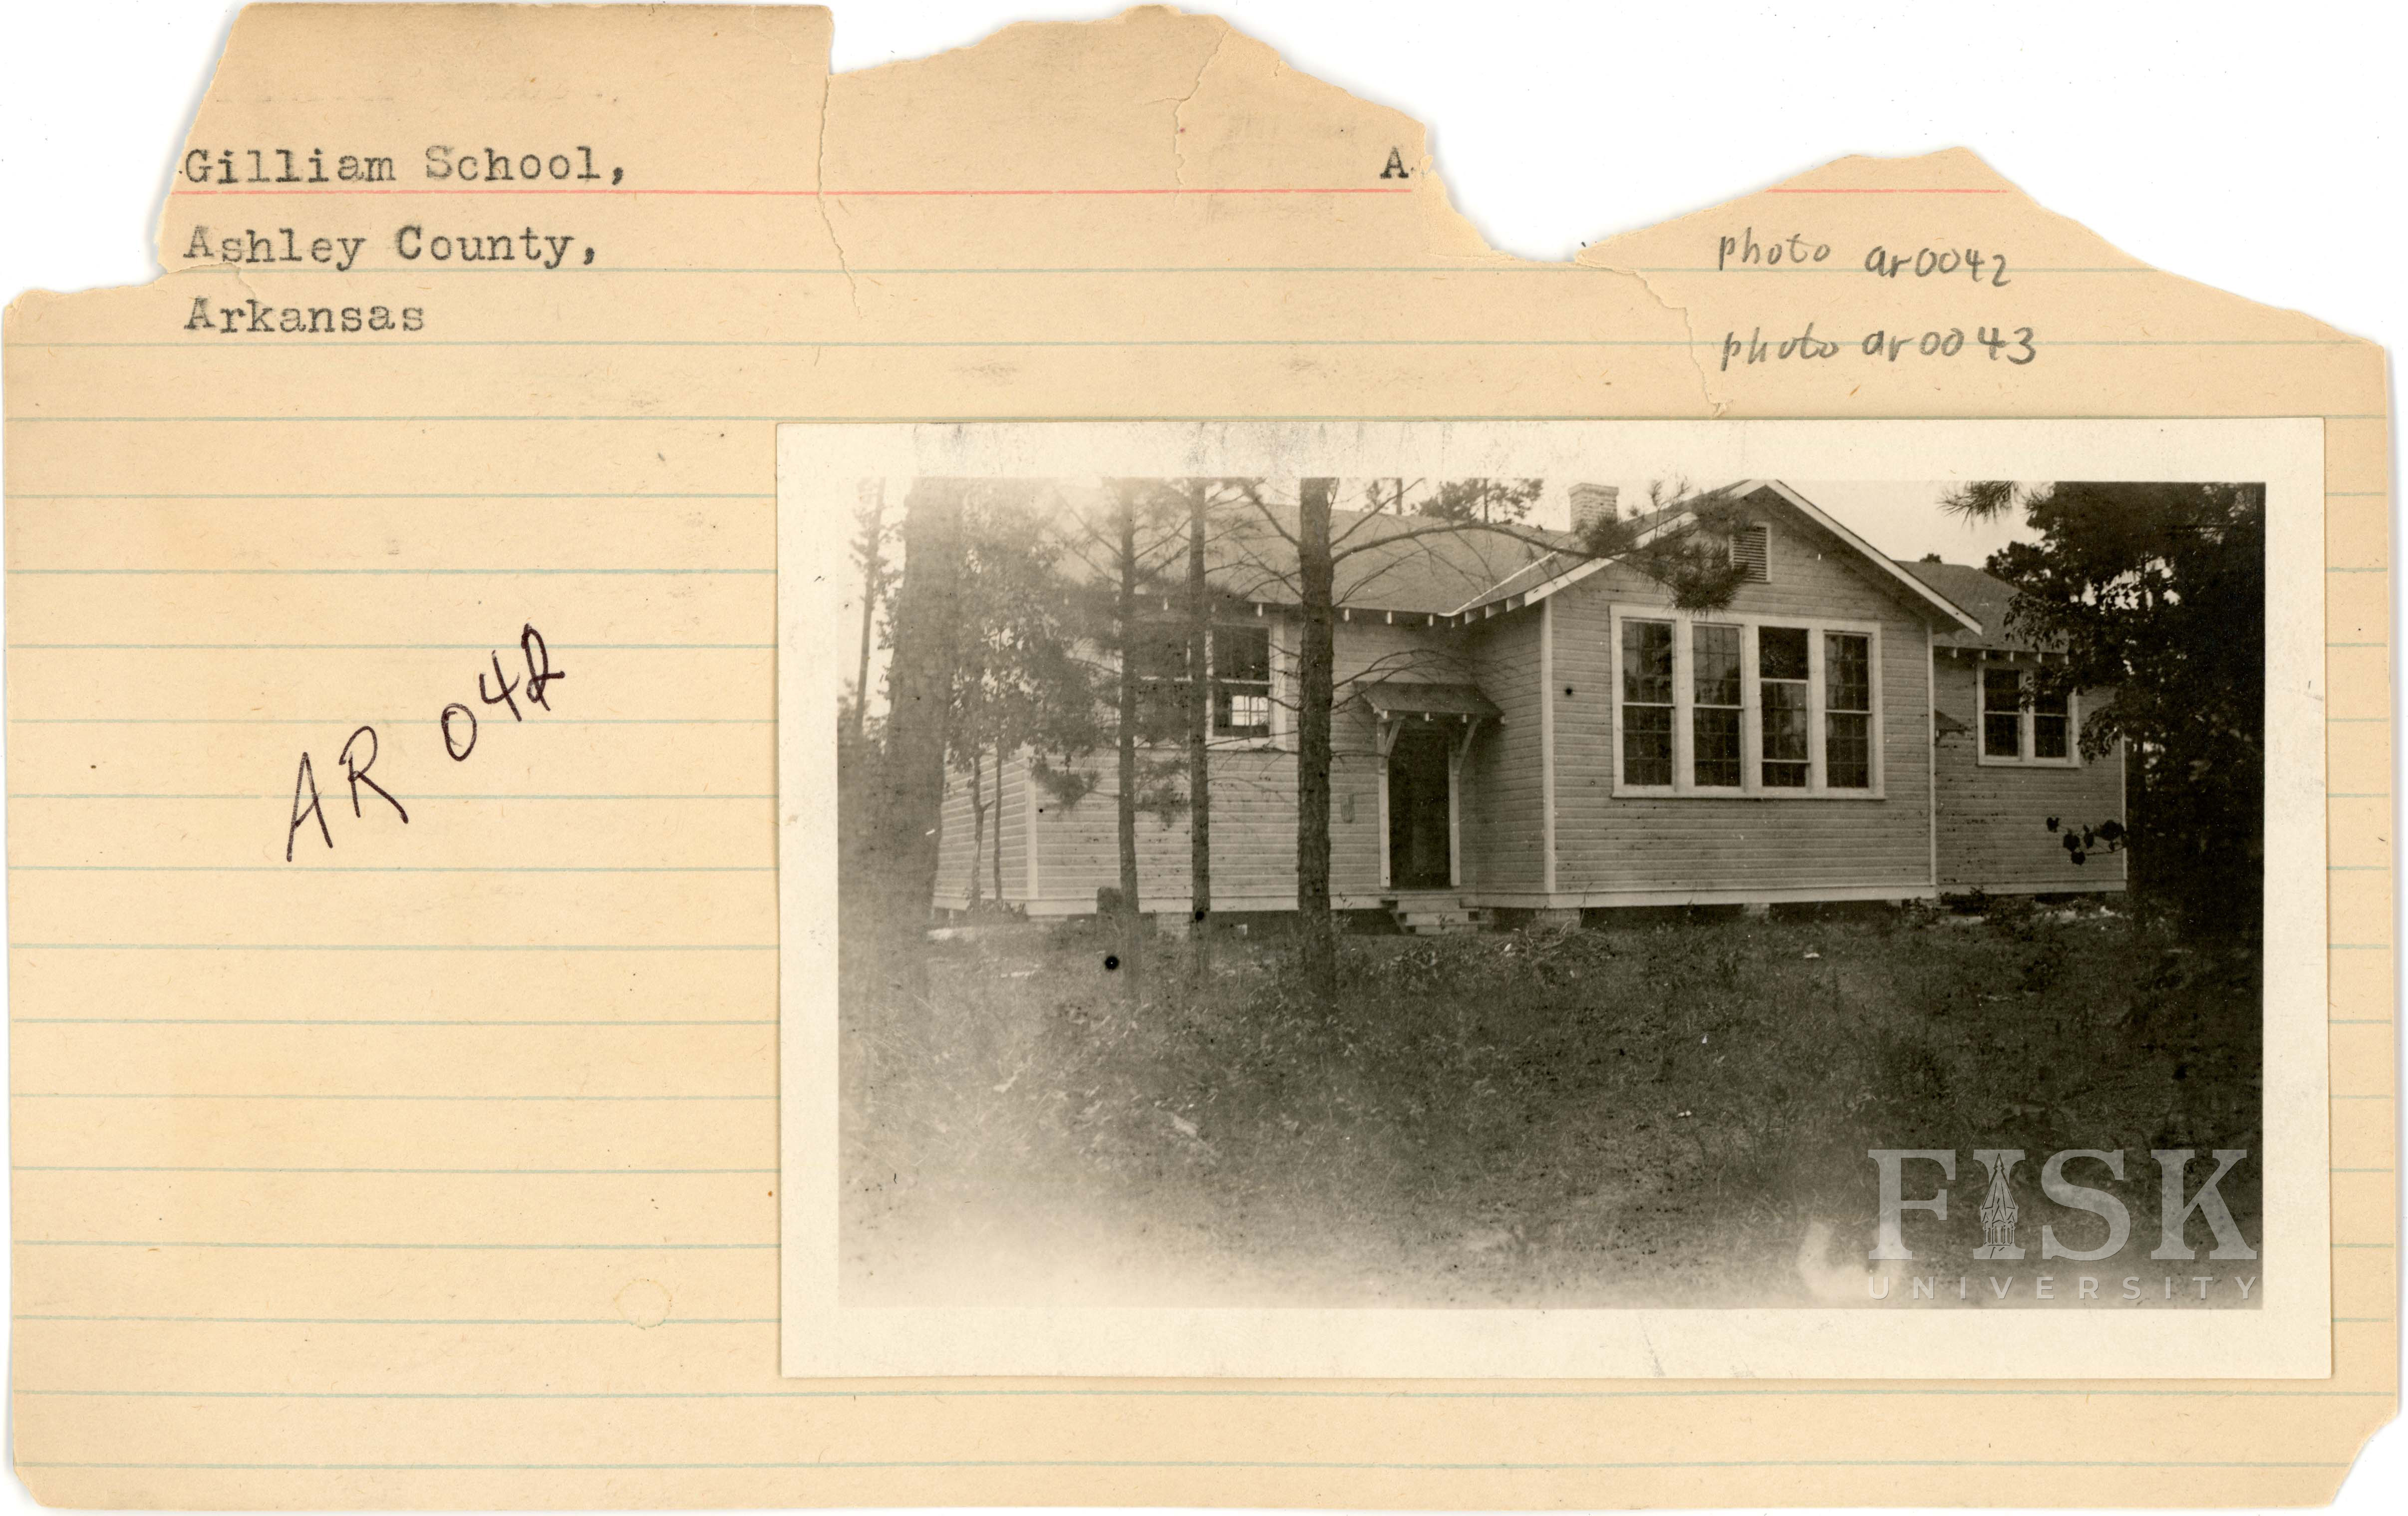 Gilliam School, A
Ashley County,
Arkansas
photo ar0042
photo ar0043
AR 042
FISK
UNIVERSITY